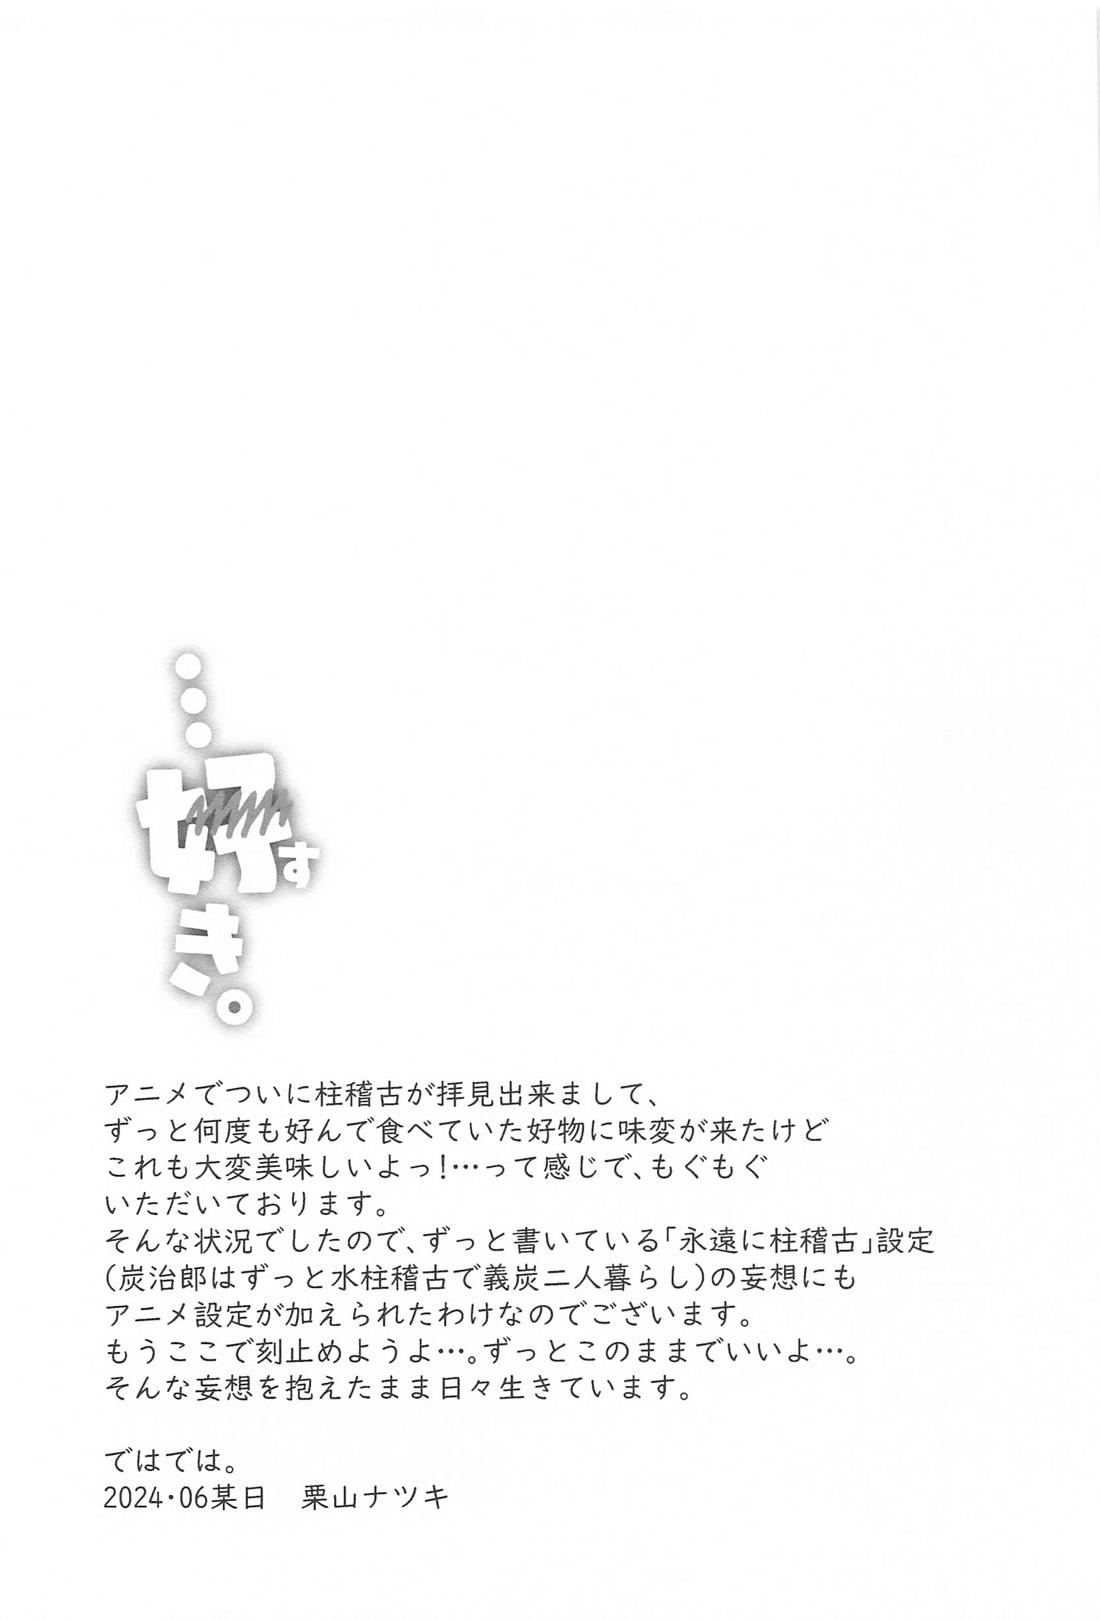 …好き。
す
アニメでついに柱稽古が拝見出来まして、
ずっと何度も好んで食べていた好物に味変が来たけど
これも大変美味しいよっ!…って感じで、もぐもぐ
いただいております。
そんな状況でしたので、ずっと書いている「永遠に柱稽古」設定
(炭治郎はずっと水柱稽古で義炭二人暮らし)の妄想にも
アニメ設定が加えられたわけなのでございます。
もうここで刻止めようよ…。ずっとこのままでいいよ…。
そんな妄想を抱えたまま日々生きています。
ではでは。
2024・06某日　栗山ナツキ